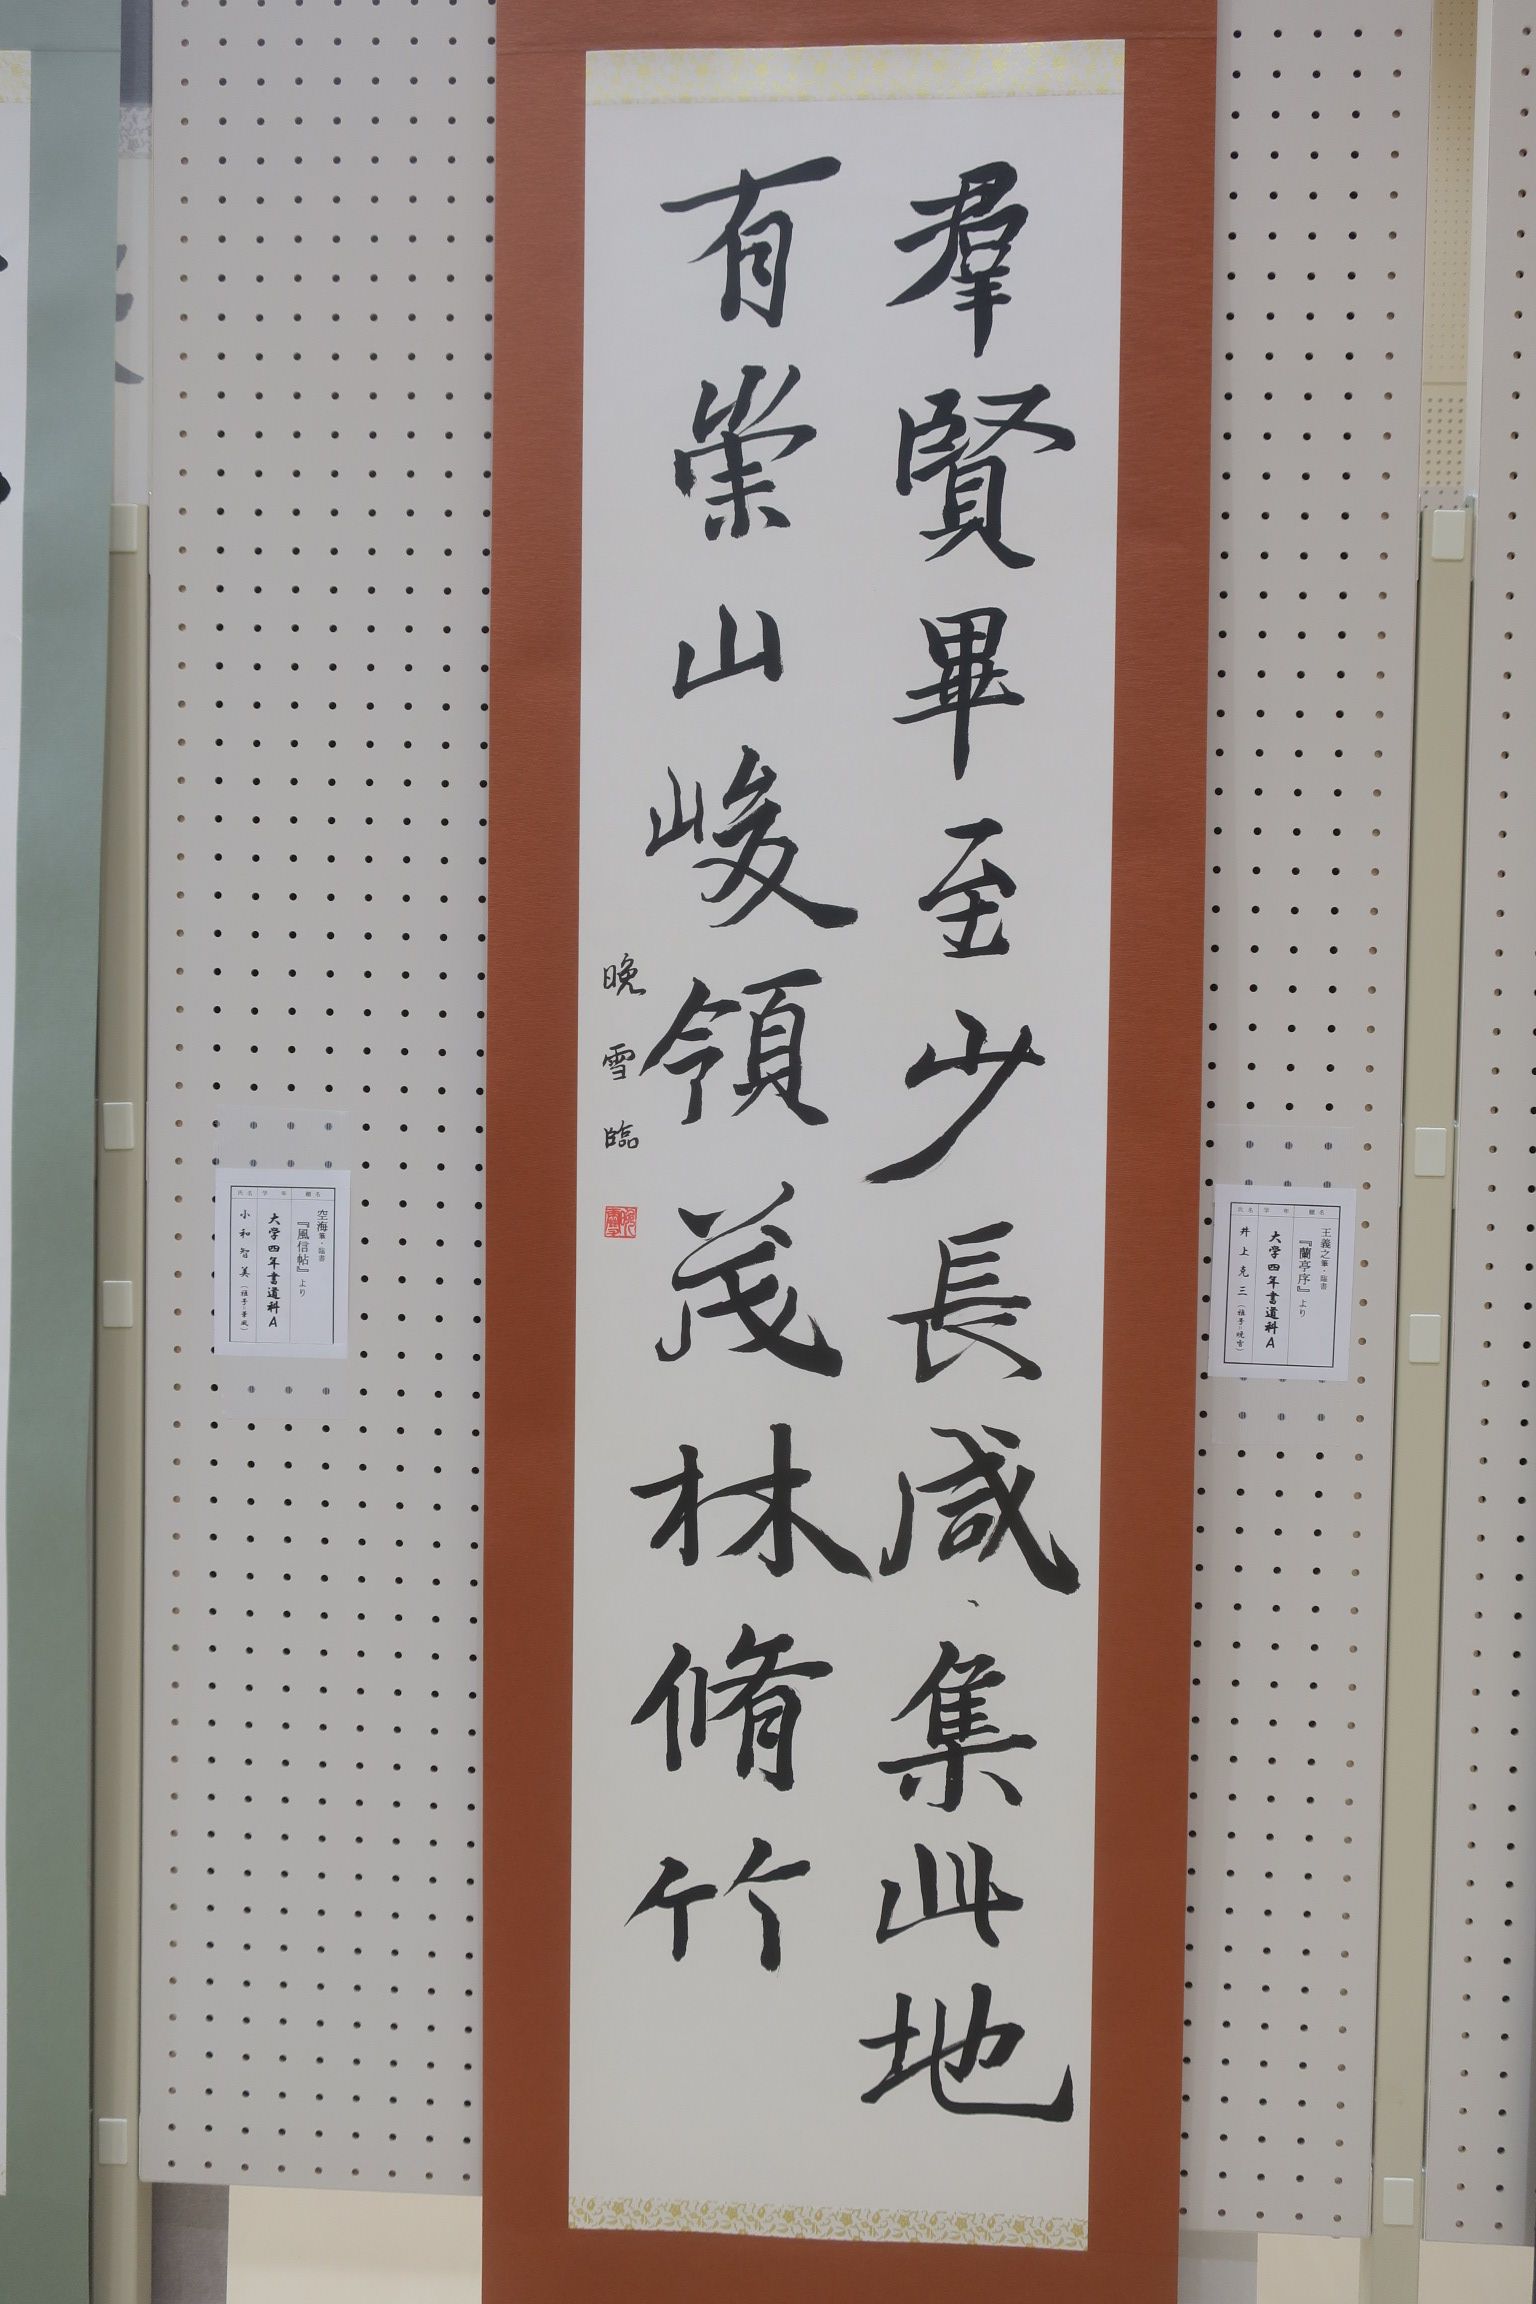 羣賢畢至少長咸集此地
有崇山峻領茂林脩竹
晩雪臨
題名
王羲之筆・臨書
『蘭亭序』より
学年
大学四年書道科A
氏名
井上克三(雅号=晩雪)
題名
空海筆・臨書
『風信帖』より
学年
大学四年書道科A
氏名
小和智美